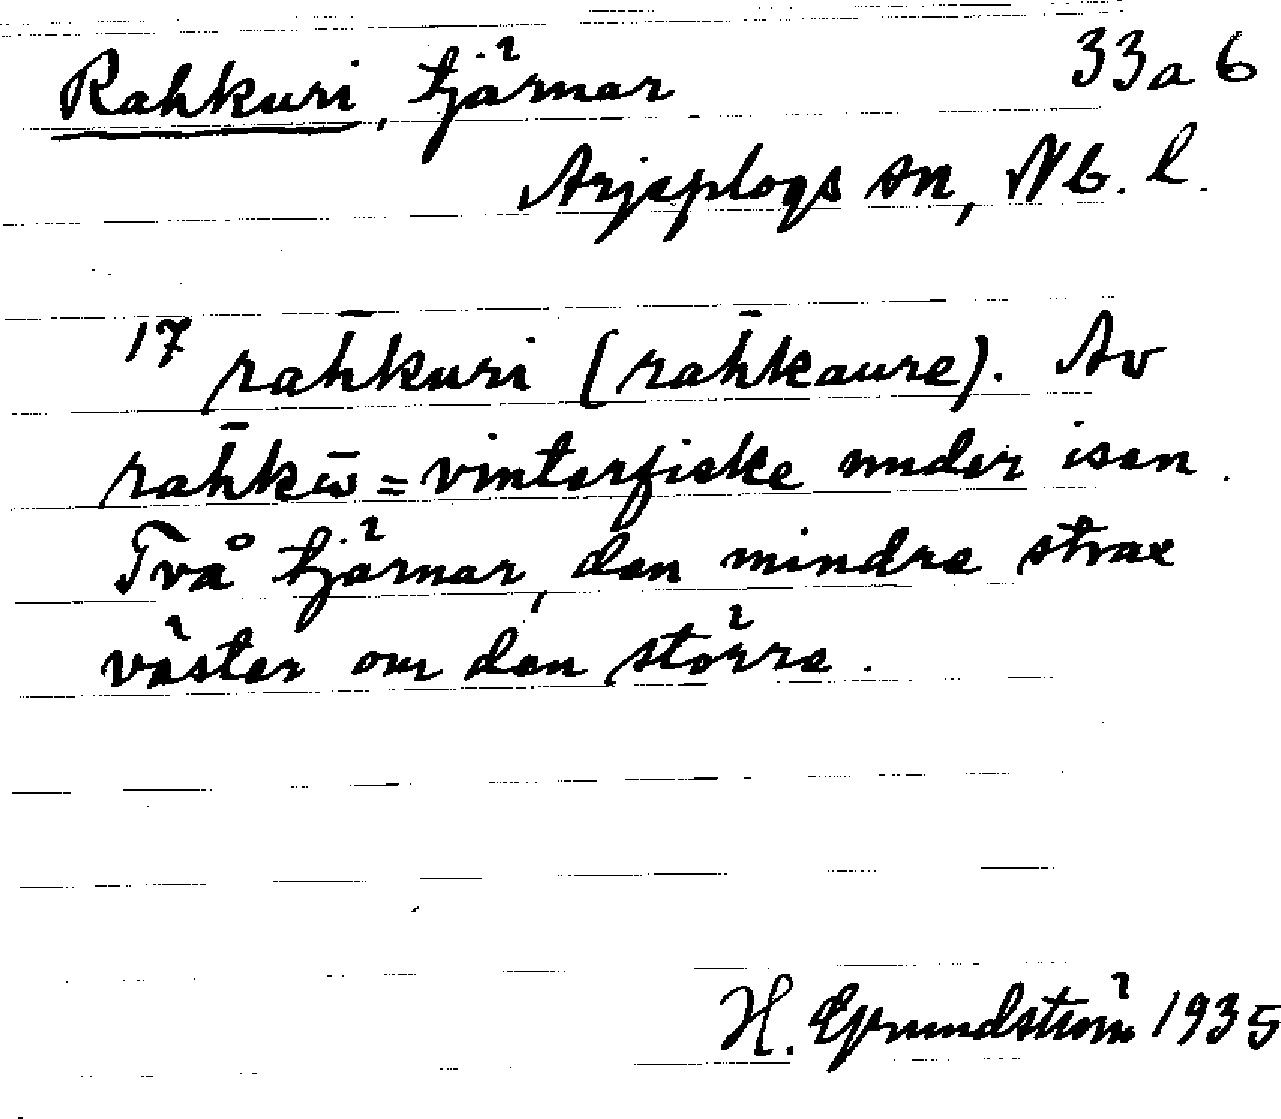 Rahkuri, tjärnar 33 a 6
Arjeplogs sn, Nb. l.
17 rah̄kuri (rah̄kaure). Av
rah̄kω̄ = vinterfiske under isen.
Två tjärnar, den mindre strax
väster om den större.
H. Grundström 1935